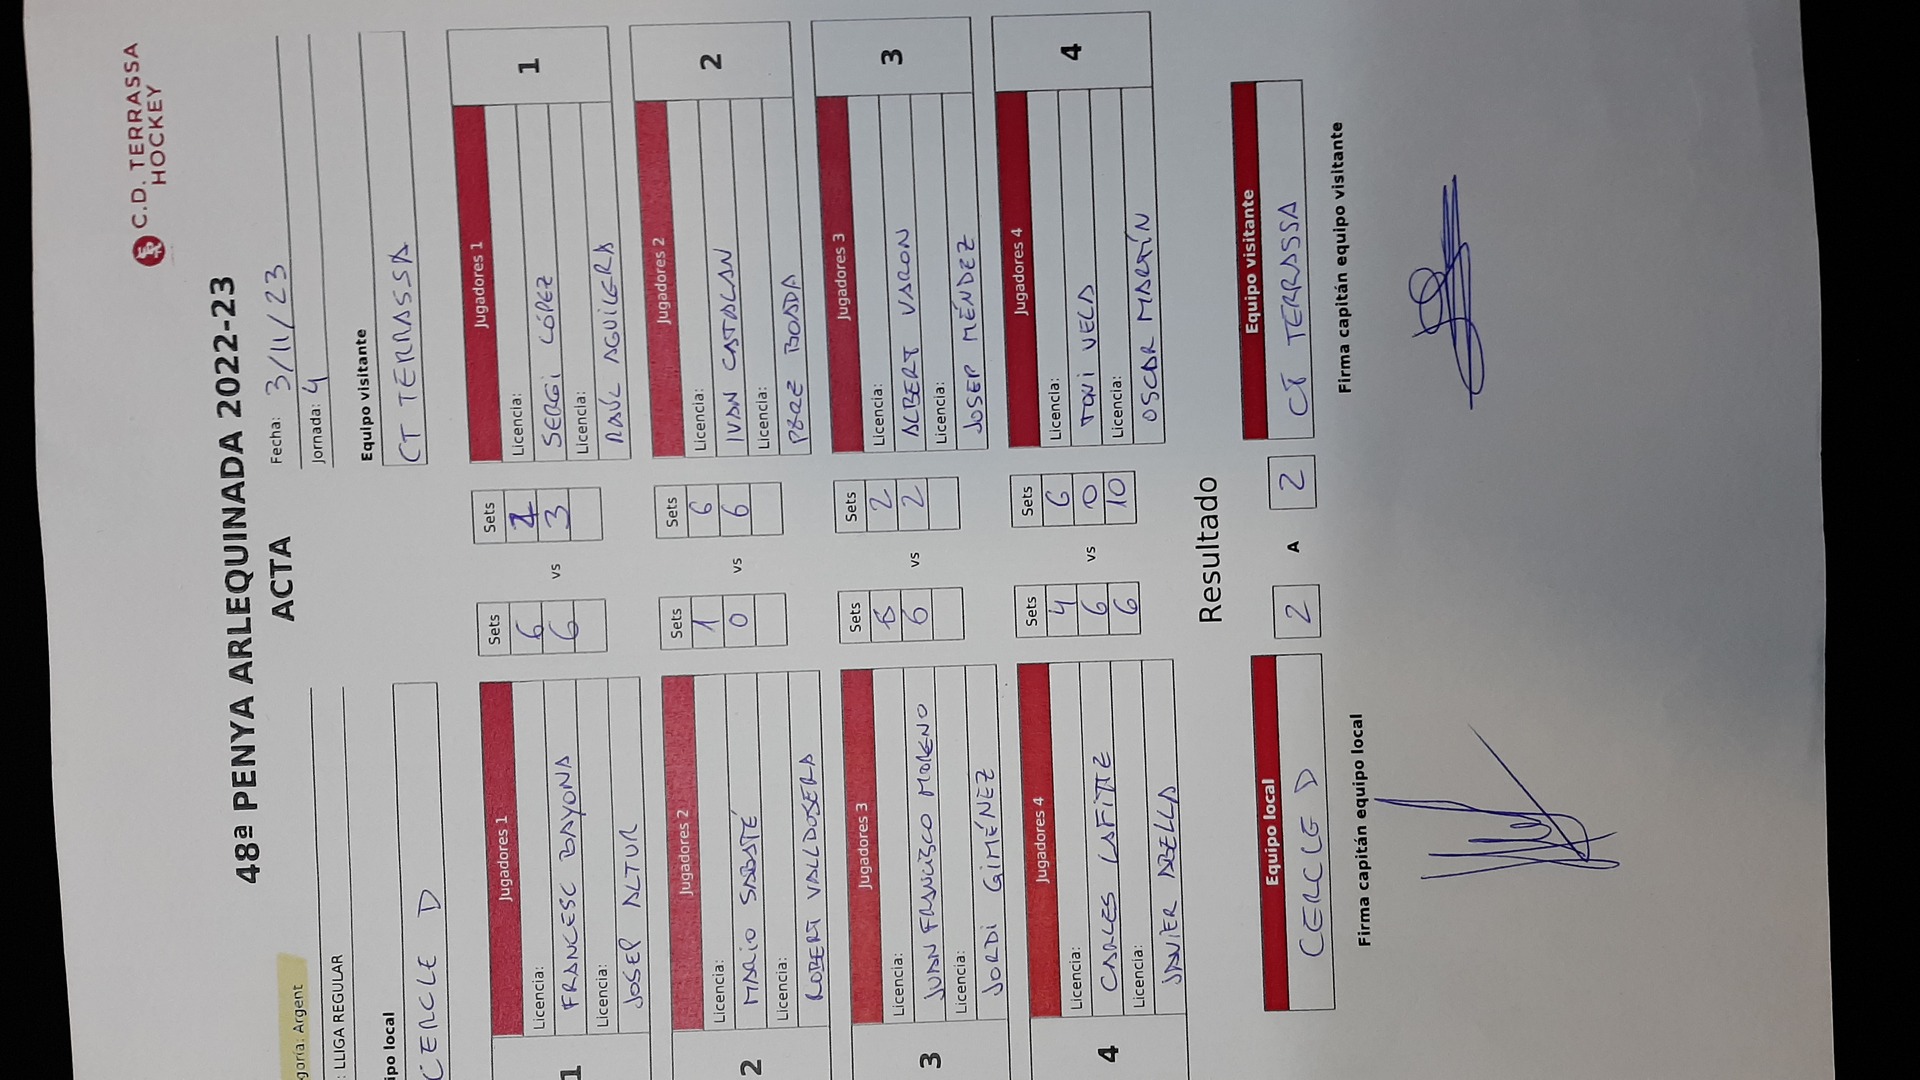 C.D. TERRASSA
HOCKEY
48ª PENYA ARLEQUINADA 2022-23
ACTA
goría: Argent
: LLIGA REGULAR
Fecha: 3/11/23
Jornada: 4
ipo local
CERCLE D
Equipo visitante
CT TERRASSA
1 Jugadores 1 Sets vs Sets Jugadores 1 1
Licencia: 6 Licencia:
FRANCESC BAYONA 6 3 SERGI LÓPEZ
Licencia: Licencia:
JOSEP ALTUR RAÚL AGUILERA
2 Jugadores 2 Sets vs Sets Jugadores 2 2
Licencia: 1 6 Licencia:
MARIO SABATÉ 0 6 IVAN CATALAN
Licencia: Licencia:
ROBERT VALLDOSERA PERE BOADA
3 Jugadores 3 Sets vs Sets Jugadores 3 3
Licencia: 6 2 Licencia:
JUAN FRANCISCO MORENO 6 2 ALBERT VARON
Licencia: Licencia:
JORDI GIMÉNEZ JOSEP MÉNDEZ
4 Jugadores 4 Sets vs Sets Jugadores 4 4
Licencia: 4 6 Licencia:
CARLES LAFITTE 6 0 TONI VELA
Licencia: 6 10 Licencia:
JAVIER ABELLA OSCAR MARTÍN
Resultado
Equipo local Equipo visitante
CERCLE D 2 A 2 CT TERRASSA
Firma capitán equipo local Firma capitán equipo visitante